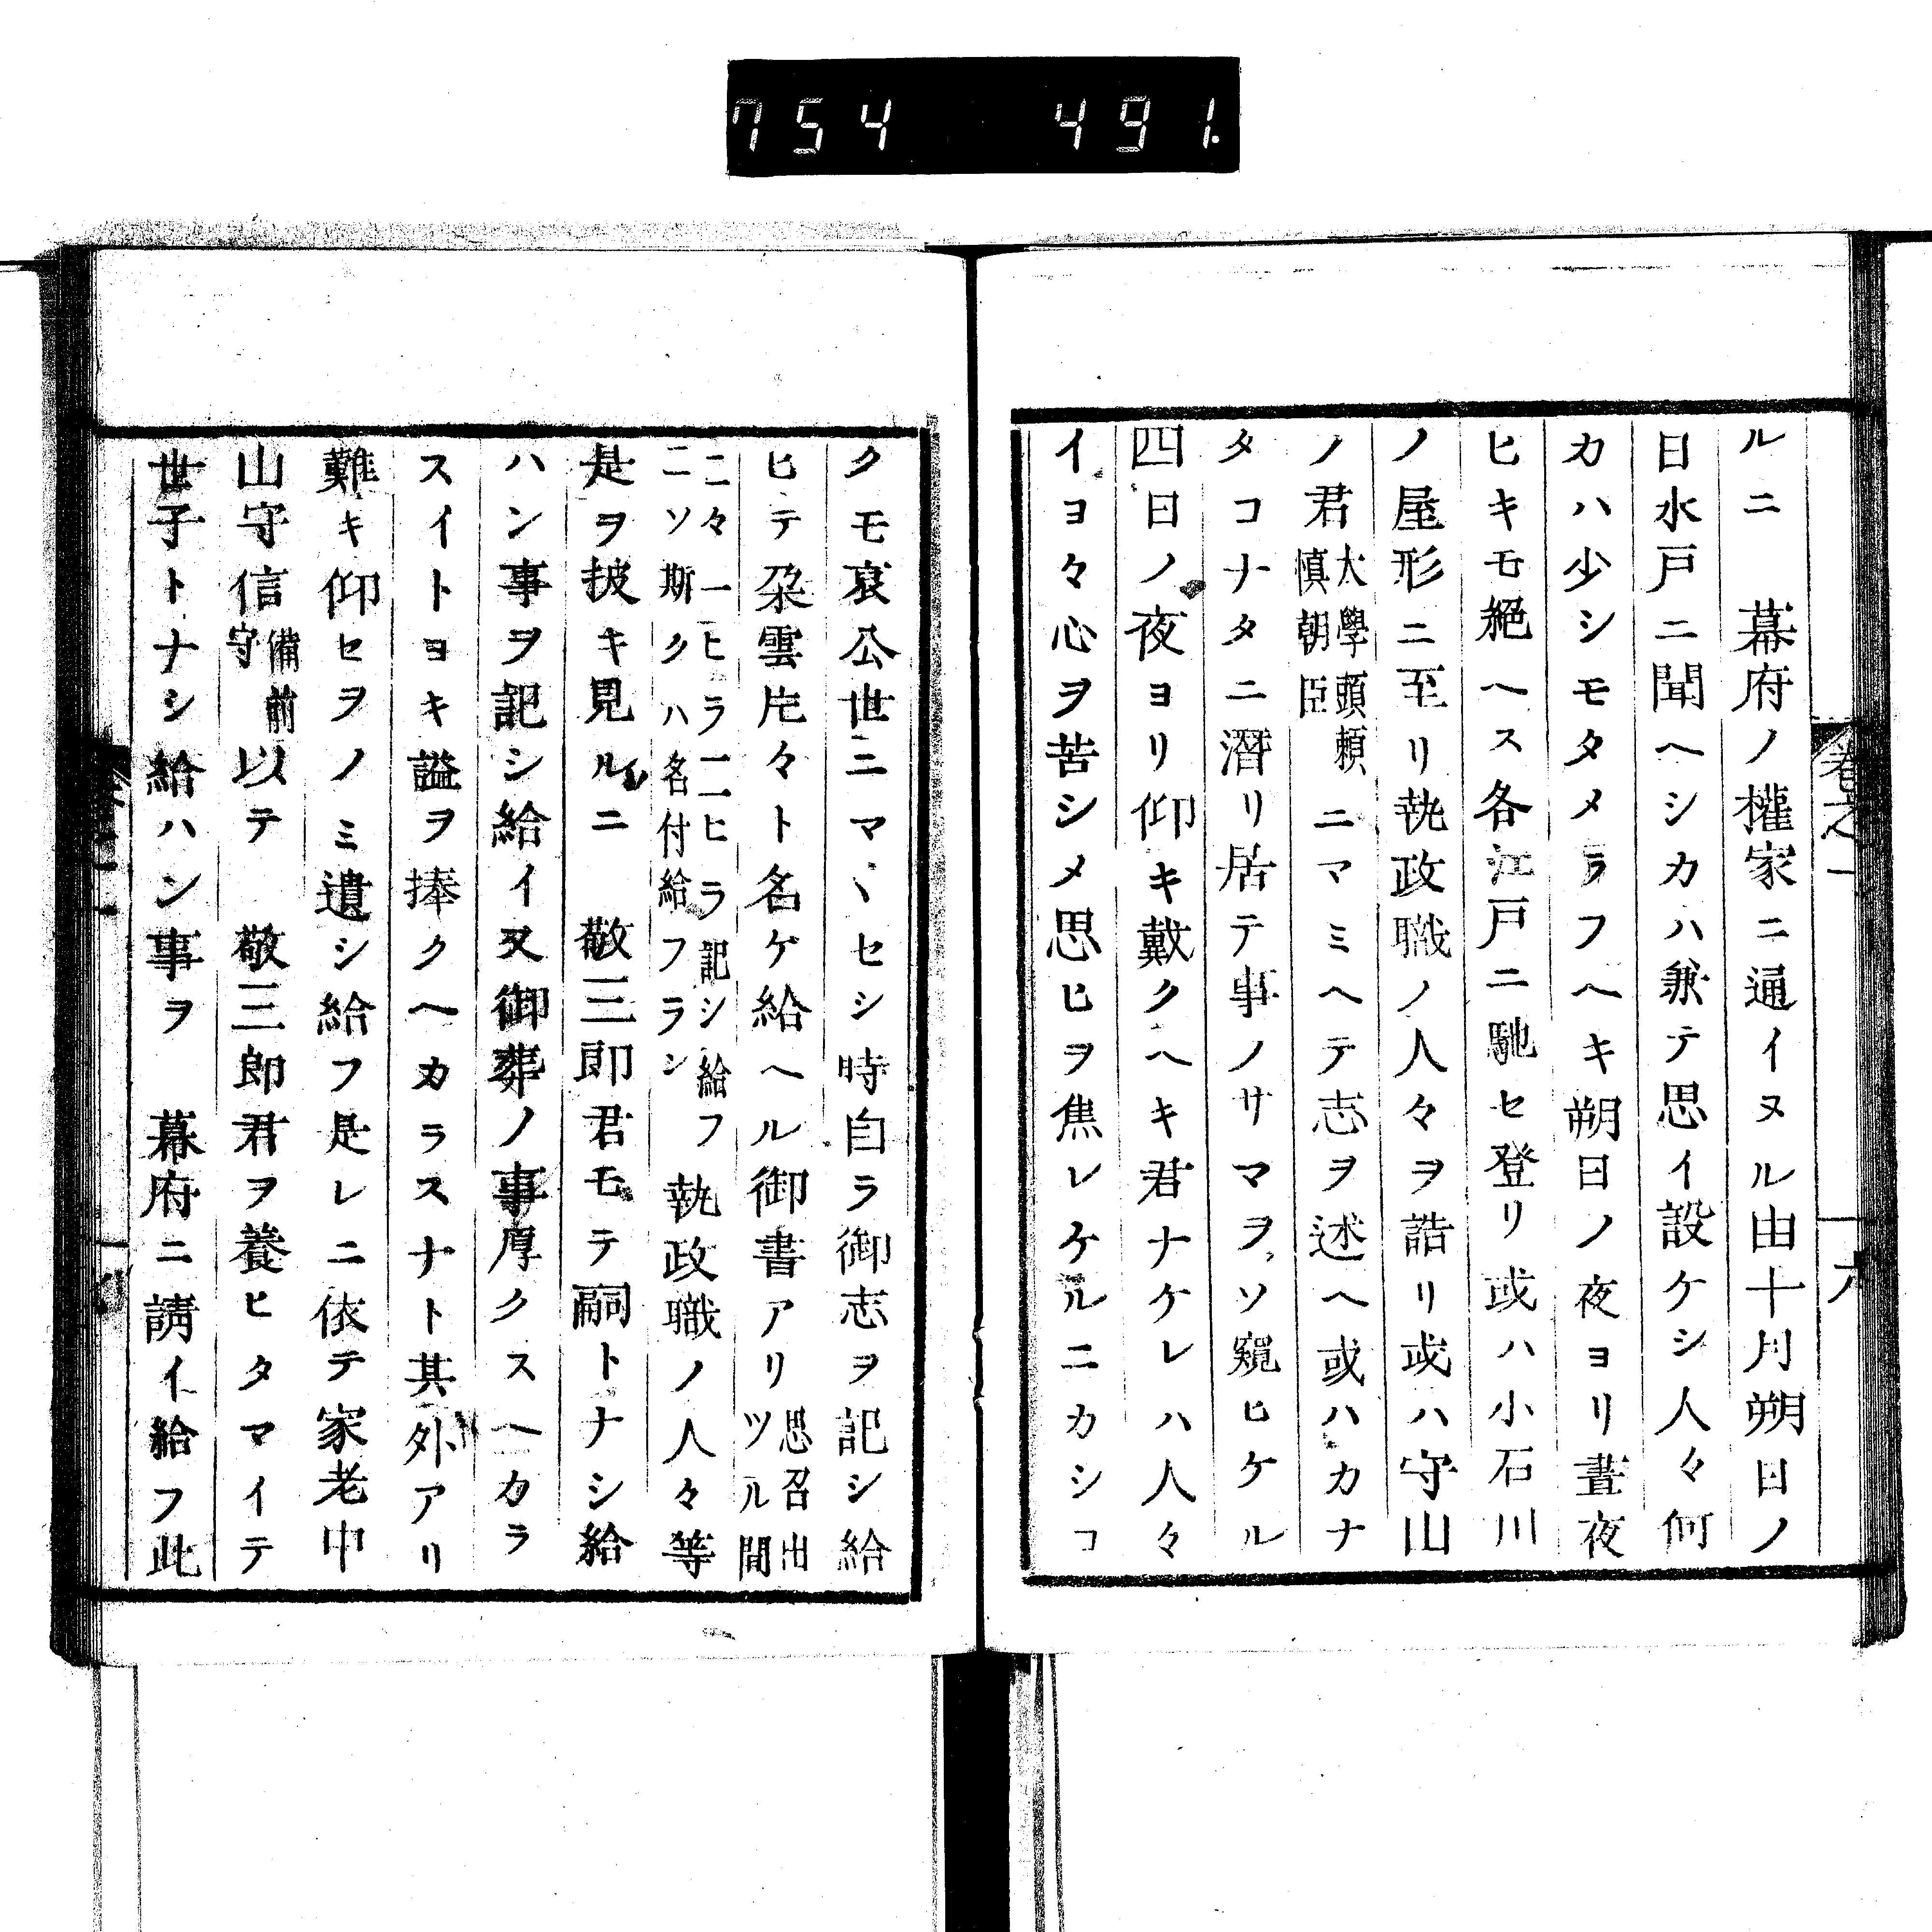 754 491.
卷之一
六
ルニ　幕府ノ權家ニ通イヌル由十月朔日ノ
日水戸ニ聞ヘシカハ兼テ思イ設ケシ人々何
カハ少シモタメラフヘキ朔日ノ夜ヨリ晝夜
ヒキモ絕ヘス各江戸ニ馳セ登リ或ハ小石川
ノ屋形ニ至リ執政職ノ人々ヲ誥リ或ハ守山
ノ君大學頭頼慎朝臣ニマミヘテ志ヲ述ヘ或ハカナ
タコナタニ潛リ居テ事ノサマヲソ窺ヒケル
四日ノ夜ヨリ仰キ戴クヘキ君ナケレハ人々
イヨ々心ヲ苦シメ思ヒヲ焦レケルニカシコ
クモ哀公世ニマヽセシ時自ラ御志ヲ記シ給
ヒテ朶雲片々ト名ケ給ヘル御書アリ思召出ツル間
ニ々一ヒラ二ヒラ記シ給フニソ斯クハ名付給フラシ執政職ノ人々等
是ヲ披キ見ルニ　敬三郎君モテ嗣トナシ給
ハン事ヲ記シ給イ又御葬ノ事厚クスヘカラ
スイトヨキ謚ヲ捧クヘカラスナト其外アリ
難キ仰セヲノミ遺シ給フ是レニ依テ家老中
山守信備前守以テ　敬三郎君ヲ養ヒタマイテ
世子トナシ給ハン事ヲ　幕府ニ請イ給フ此